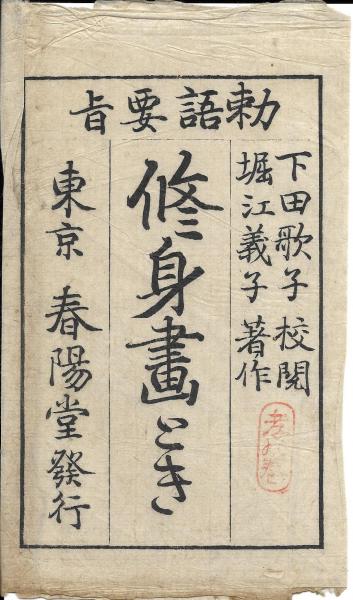 勅語要旨
下田歌子 校閲
堀江義子 著作
修身畫とき
東京 春陽堂發行